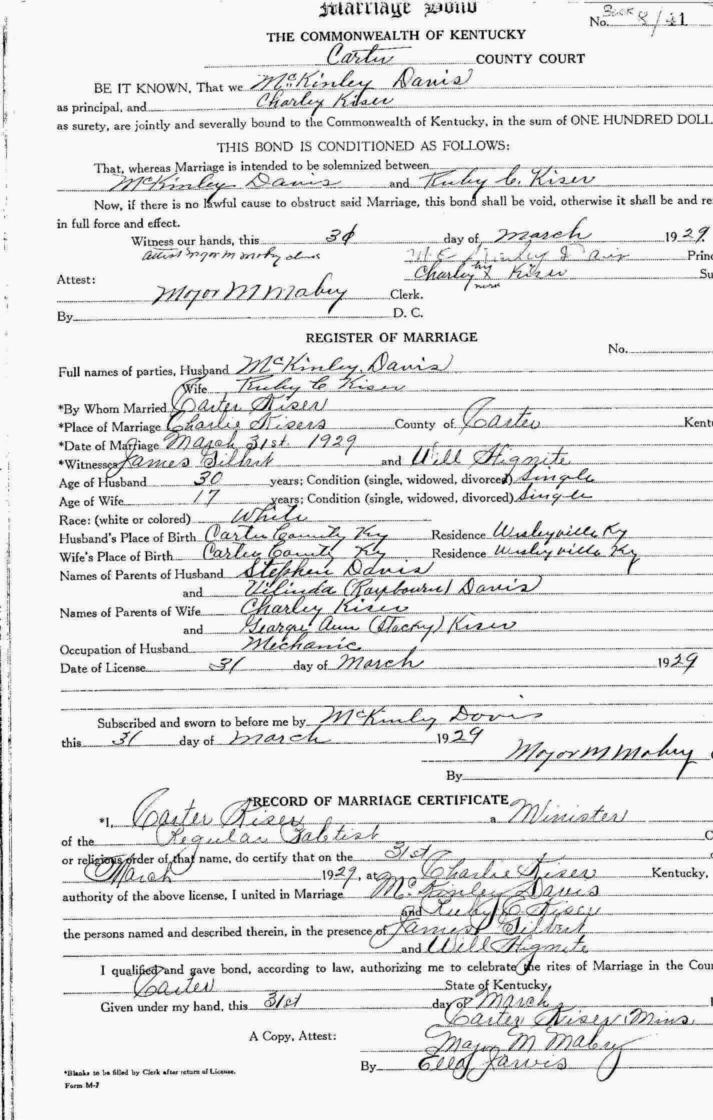 Marriage Bond
No. Book 8/41
THE COMMONWEALTH OF KENTUCKY
Carter COUNTY COURT
BE IT KNOWN, That we McKinley Davis
as principal, and Charley Kiser
as surety, are jointly and severally bound to the Commonwealth of Kentucky, in the sum of ONE HUNDRED DOLL
THIS BOND IS CONDITIONED AS FOLLOWS:
That, whereas Marriage is intended to be solemnized between
McKinley Davis and Ruby C. Kiser
Now, if there is no lawful cause to obstruct said Marriage, this bond shall be void, otherwise it shall be and re
in full force and effect.
Witness our hands, this 30 day of March 1929.
Attest Major M Mabry clerk Princ
Charley his X mark Kiser Su
Attest: Major M Mabry Clerk.
By D. C.
REGISTER OF MARRIAGE
No.
Full names of parties, Husband McKinley Davis
Wife Ruby C Kiser
*By Whom Married Carter Kiser
*Place of Marriage Charlie Kisers County of Carter Kent
*Date of Marriage March 31st 1929
*Witnesses James Gilbert and Will Hignite
Age of Husband 30 years; Condition (single, widowed, divorced) Single
Age of Wife 17 years; Condition (single, widowed, divorced) Single
Race: (white or colored) White
Husband's Place of Birth Carter County Ky Residence Wesleyville Ky
Wife's Place of Birth Carter County Ky Residence Wesleyville Ky
Names of Parents of Husband Stephen Davis
and Vilinda (Raybourn) Davis
Names of Parents of Wife Charley Kiser
and George Ann (Stacky) Kiser
Occupation of Husband Mechanic
Date of License 31 day of March 1929
Subscribed and sworn to before me by McKinly Davis
this 31 day of March 1929
Major M Mabry
By
RECORD OF MARRIAGE CERTIFICATE
*I, Carter Kiser a Minister
of the Regular Babtist C
or religious order of that name, do certify that on the 31st
March 1929, at Charlie Kiser Kentucky,
authority of the above license, I united in Marriage McKinley Davis
and Ruby C Kiser
the persons named and described therein, in the presence of James Gilbert
and Will Hignite
I qualified and gave bond, according to law, authorizing me to celebrate the rites of Marriage in the Cour
Carter State of Kentucky,
Given under my hand, this 31st day of March
Carter Kiser Mins
A Copy, Attest: Major M Mabry
By Ella Jarvis
*Blanks to be filled by Clerk after return of License.
Form M-7